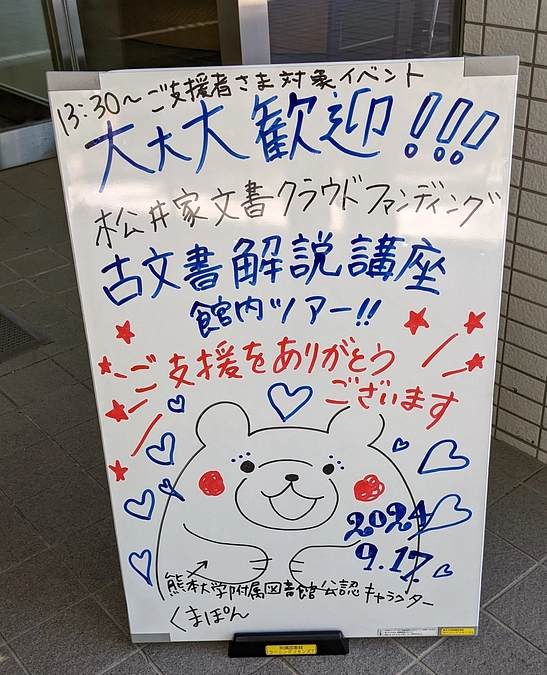 13:30～ご支援者さま対象イベント
大大大歓迎!!!
松井家文書クラウドファンディング
古文書解説講座
館内ツアー!!
ご支援をありがとう
ございます
2024
9.17.
熊本大学附属図書館公認キャラクター
くまぽん
附属図書館
ラーニングコモンズ